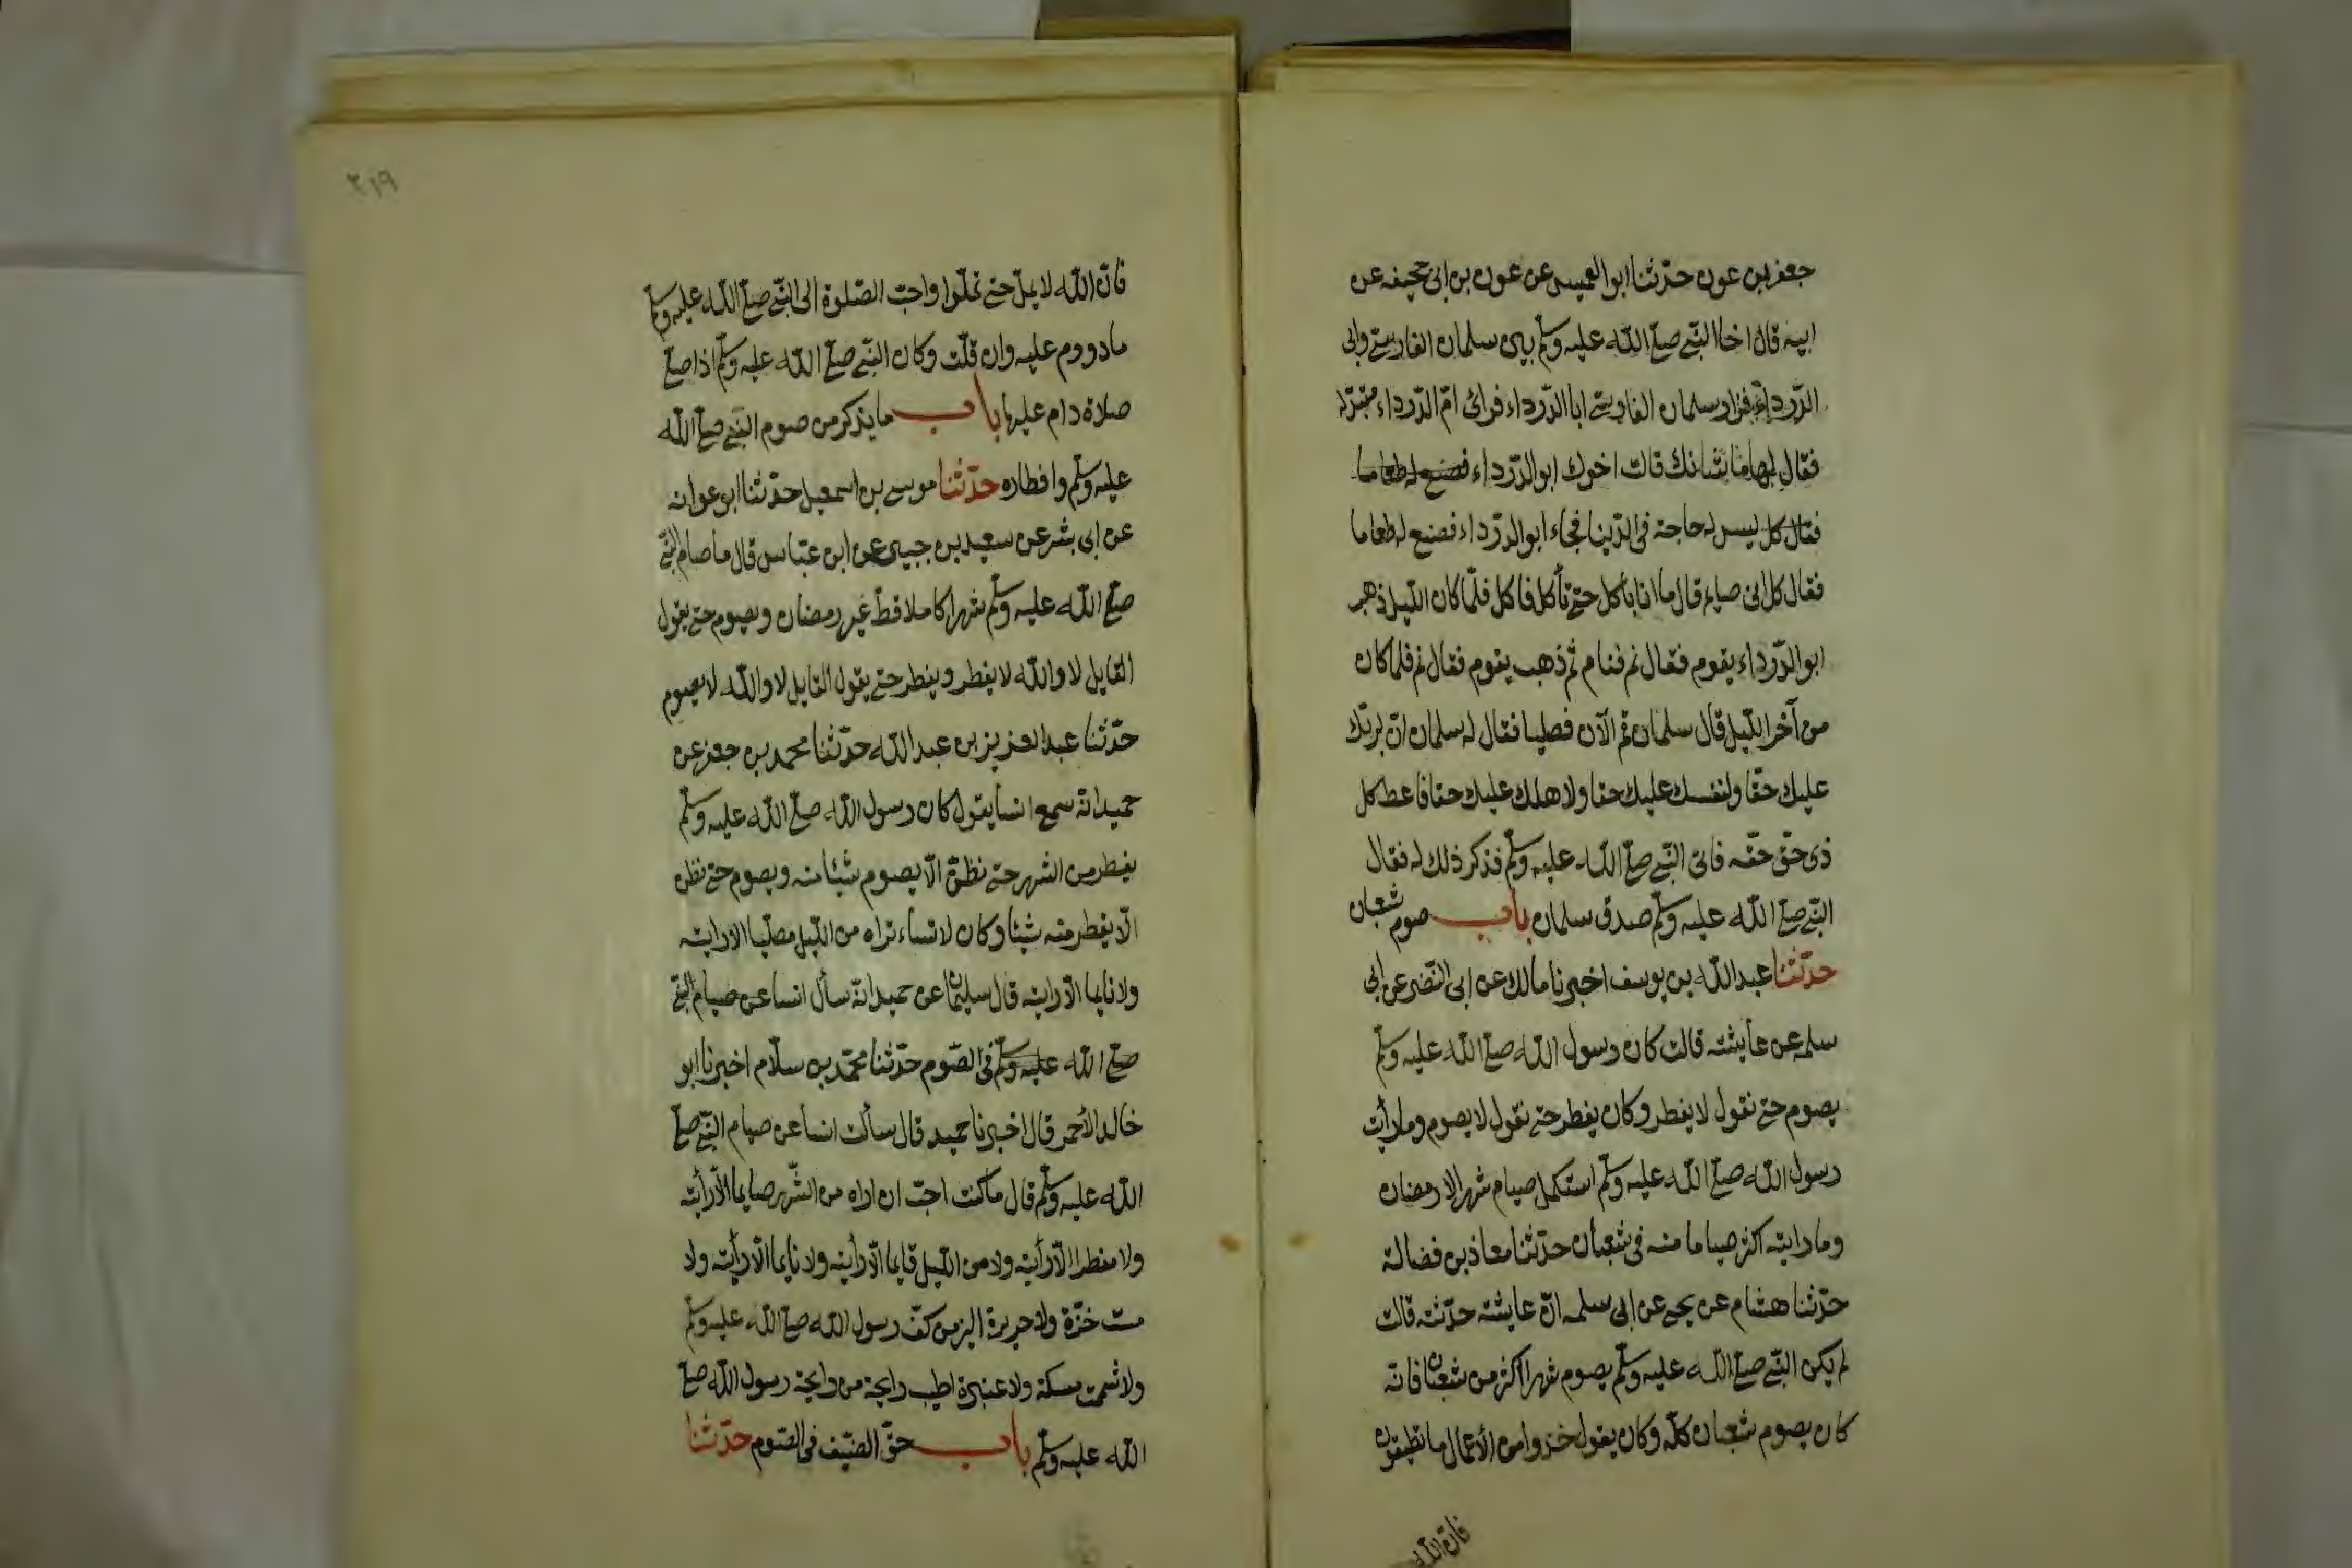 جعفر بن عون حدّثنا ابو العميس عن عون بن ابى جحيفه عن
ابيه قال اخا النّبى صلّى اللّه عليه وسلّم بين سلمان الفارسى وابى
الدّرداء فزار سلمان الفارسى ابا الدّرداء فرائ امّ الدّرداء متبذّله
فقال لها ما شانك قالت اخوك ابو الدّرداء فصنع له طعاما
فقال كل ليس له حاجة فى الدّنيا فجاء ابو الدّرداء فصنع له طعاما
فقال كل انى صايم قال ما انا بأكل حتى تأكل فاكل فلمّا كان اللّيل ذهب
ابو الدّرداء يقوم فقال نم فنام ثم ذهب يقوم فقال نم فلما كان
من آخر اللّيل قال سلمان قم الآن فصليا فقال له سلمان انّ لربّك
عليك حقّا ولنفسك عليك حقا ولاهلك عليك حقا فاعط كل
ذى حقّ حقّه فاتى النّبى صلّى اللّه عليه وسلّم فذكر ذلك له فقال
النّبى صلّى اللّه عليه وسلّم صدق سلمان باب صوم شعبان
حدّثنا عبد اللّه بن يوسف اخبرنا مالك عن ابى النّضر عن ابى
سلمه عن عايشته قالت كان رسول اللّه صلّى اللّه عليه وسلّم
يصوم حتى نقول لا يفطر وكان يفطر حتى نقول لا يصوم وما رأيت
رسول اللّه صلّى اللّه عليه وسلّم استكمل صيام شهر الا رمضان
وما رايته اكثر صياما منه فى شعبان حدّثنا معاذ بن فضالة
حدّثنا هشام عن يحيى عن ابى سلمه انّ عايشته حدّثته قالت
لم يكن النّبى صلّى اللّه عليه وسلّم يصوم شهرا اكثر من شعبان فانّه
كان يصوم شعبان كلّه وكان يقول خذوا من الأعمال ما تطيقون
فان اللّه
٣١٩
فانّ اللّه لا يملّ حتى تملّوا واحبّ الصّلوة الى النّبى صلّى اللّه عليه وسلّم
ما دووم عليه وان قلّت وكان النّبى صلّى اللّه عليه وسلّم اذا صلّى
صلاة دام عليها باب ما يذكر من صوم النّبى صلّى اللّه
عليه وسلّم وافطاره حدّثنا موسى بن اسمعيل حدّثنا ابو عوانه
عن ابى بشر عن سعيد بن جبير عن ابن عبّاس قال ما صام النّبى
صلّى اللّه عليه وسلّم شهرا كاملا قطّ غير رمضان ويصوم حتى يقول
القايل لا واللّه لا يفطر ويفطر حتى يقول القايل لا واللّه لا يصوم
حدّثنا عبد العزيز بن عبد اللّه حدّثنا محمد بن جعفر عن
حميد انّه سمع انسا يقول كان رسول اللّه صلّى اللّه عليه وسلّم
يفطر من الشهر حتى نظنّ الّا يصوم شيئا منه ويصوم حتى نظن
الّا يفطر منه شيئا وكان لا تشاء تراه من اللّيل مصلّيا الا رايته
ولا نايما الّا رايته قال سليمان عن حميد انّه سأل انسا عن صيام النّبى
صلّى اللّه عليه وسلّم فى الصّوم حدّثنا محمّد بن سلّام اخبرنا ابو
خالد الأحمر قال اخبرنا حميد قال سألت انسا عن صيام النّبى صلّى
اللّه عليه وسلّم قال ما كنت احبّ ان اراه من الشّهر صايما الّا رأيته
ولا مفطرا الّا رأيته ولا من اللّيل قايما الّا رأيته ولا نايما الّا رأيته ولا
مست خزّة ولا حريرة الين من كفّ رسول اللّه صلّى اللّه عليه وسلّم
ولا شممت مسكة ولا عنبرة اطيب رايحة من رايحة رسول اللّه صلّى
اللّه عليه وسلّم باب حقّ الضّيف فى الصّوم حدّثنا